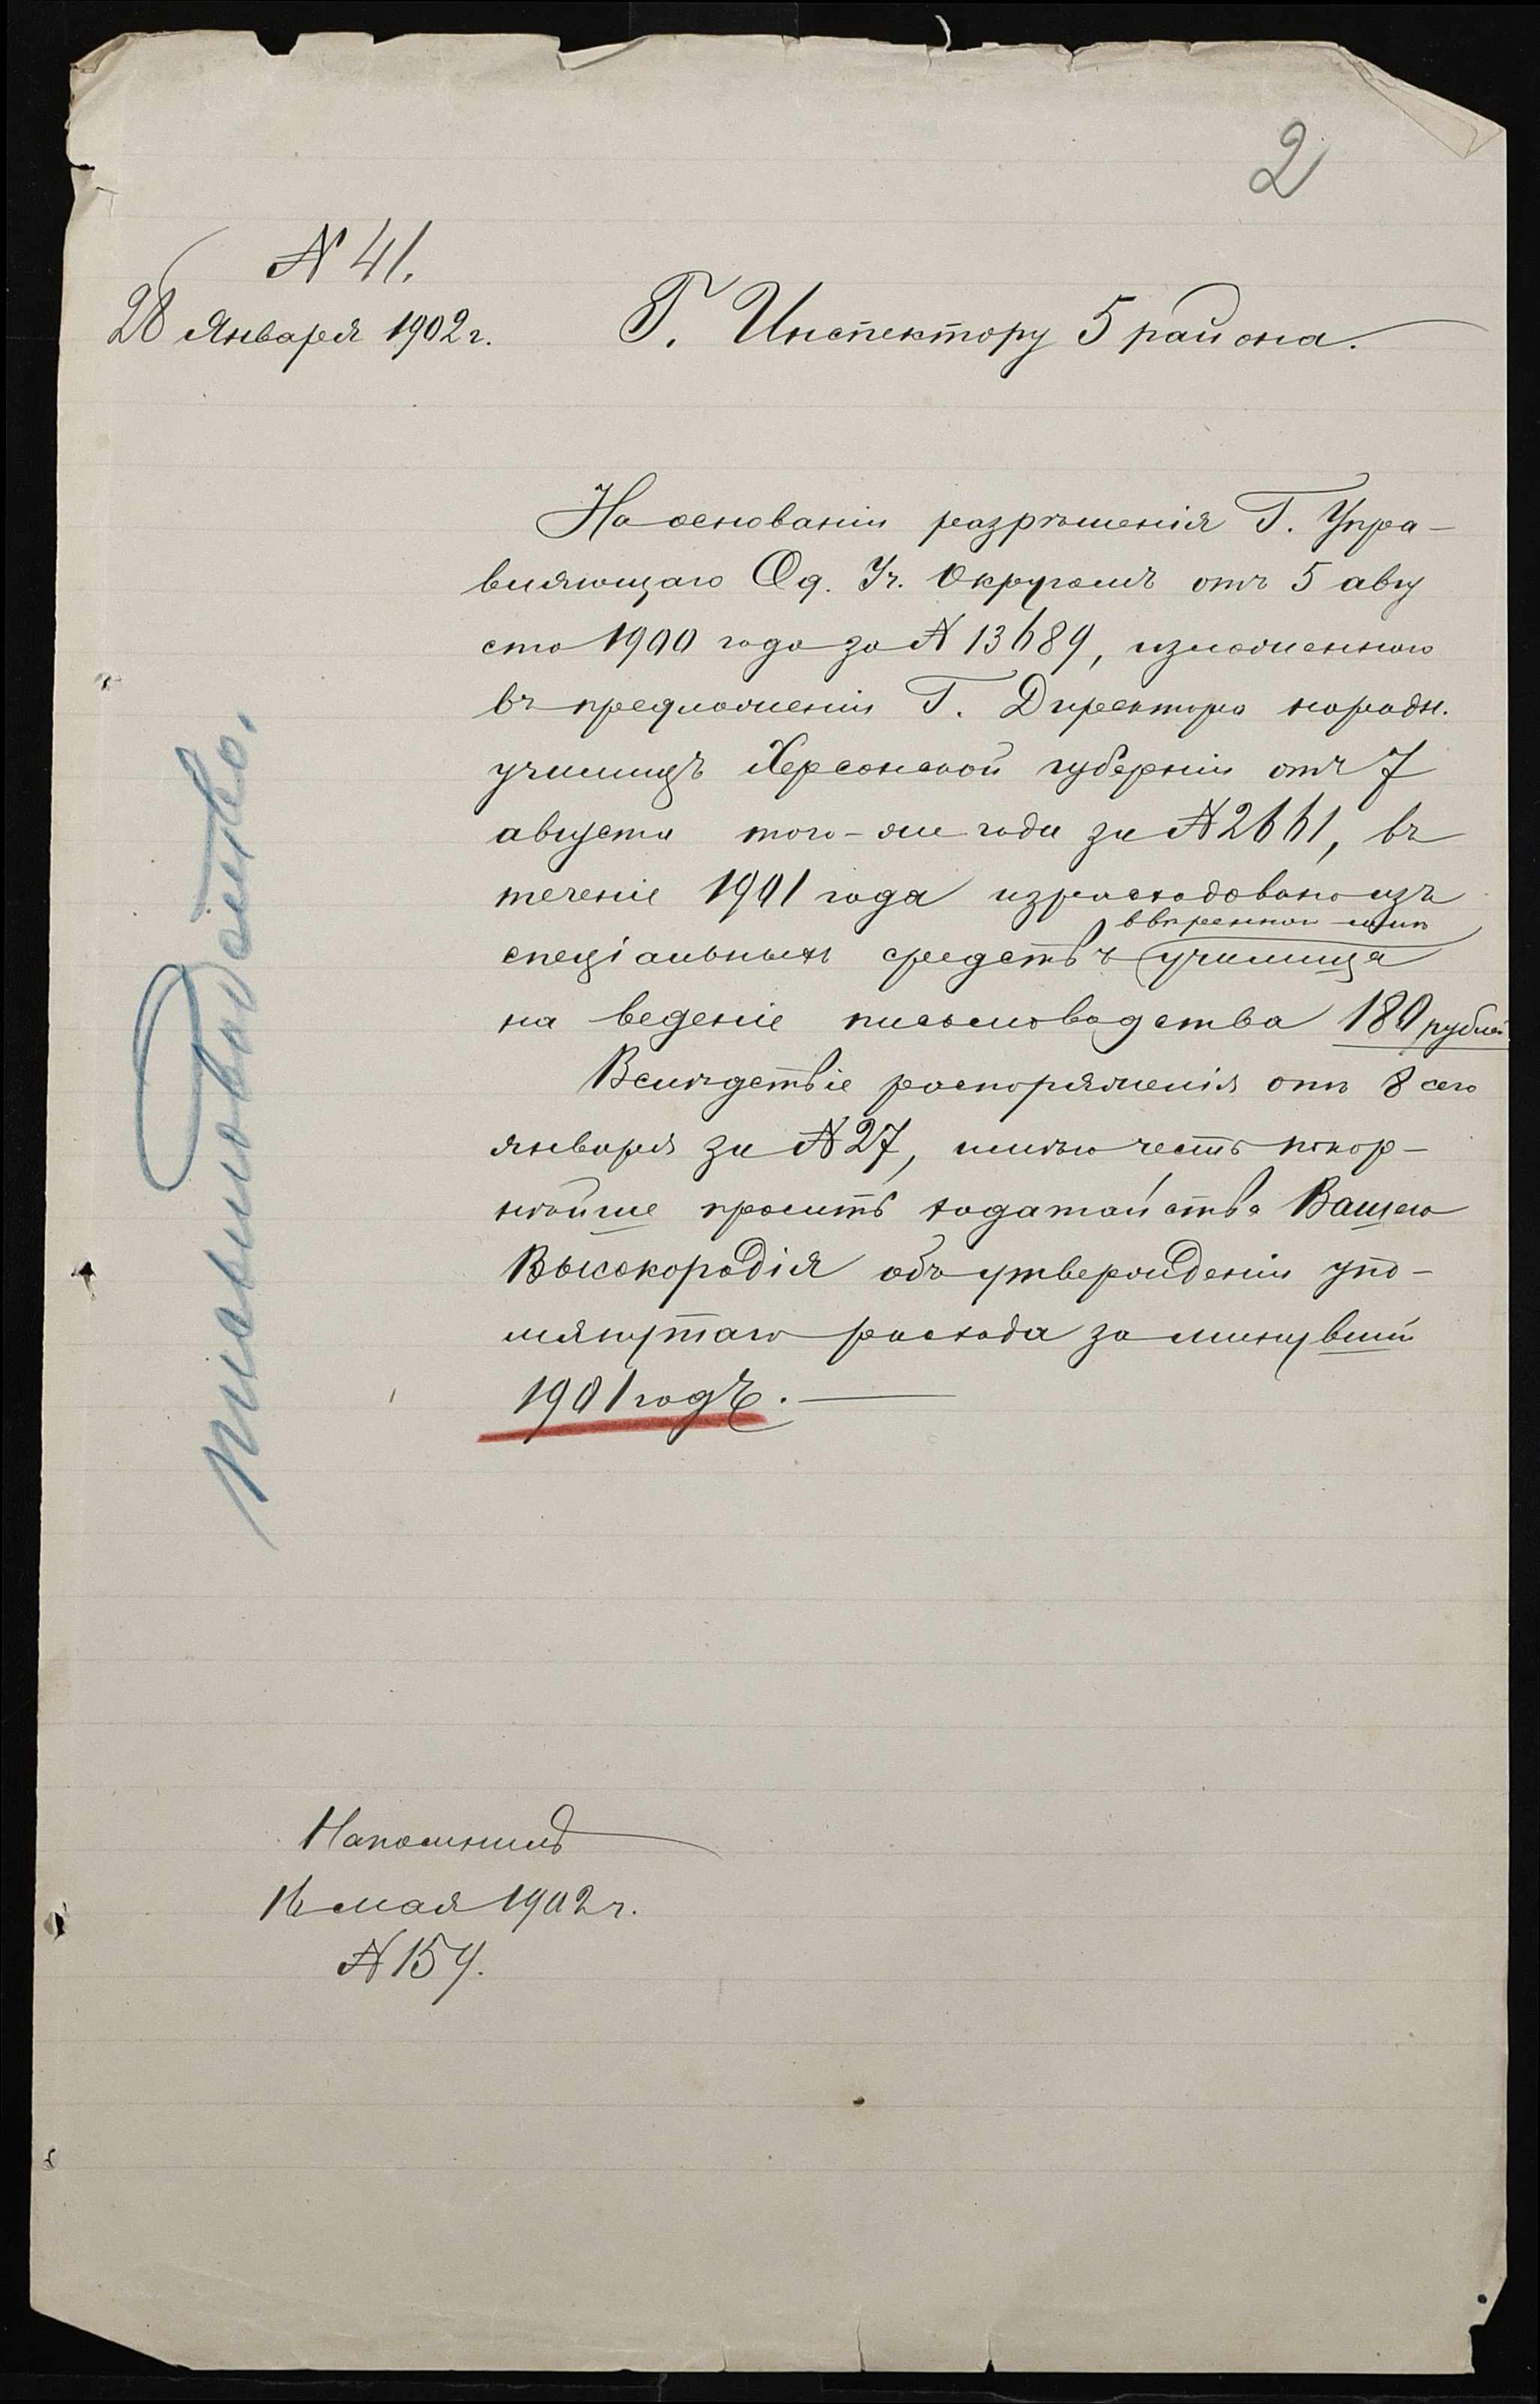 2
№ 41.
28 Января 1902 г.
Г. Инспектору 5 района.
На основаніи разрѣшенія Г. Упра-
вляющаго Од. Уч. Округомъ отъ 5 авгу
ста 1900 года за № 13689, изложеннаго
въ предложеніи Г. Директора народн.
училищъ Херсонской губерніи отъ 7
августа того-же года за № 2661, въ
теченіе 1901 года израсходовано изъ
ввѣреннаго мнѣ
спеціальныхъ средствъ училища
на веденіе письмоводства 180 рублей
Вслѣдствіе распоряженія отъ 8 сего
января за № 27, имѣю честь покор-
нѣйше просить ходатайства Вашего
Высокородія объ утвержденіи упо-
мянутаго расхода за минувшій
1901 годъ.
Письмоводство.
Напомнилъ
16 мая 1902 г.
№ 154.